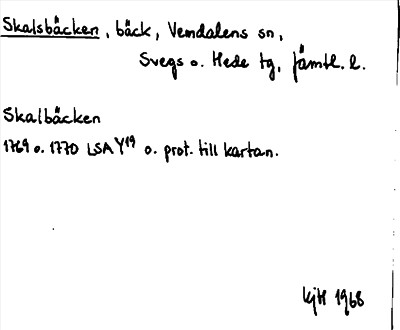 Skalsbäcken, bäck, Vemdalens sn,
Svegs o. Hede tg, Jämtl. l.
Skalbäcken
1769 o. 1770 LSA Y19 o. prot. till kartan.
KjH 1968